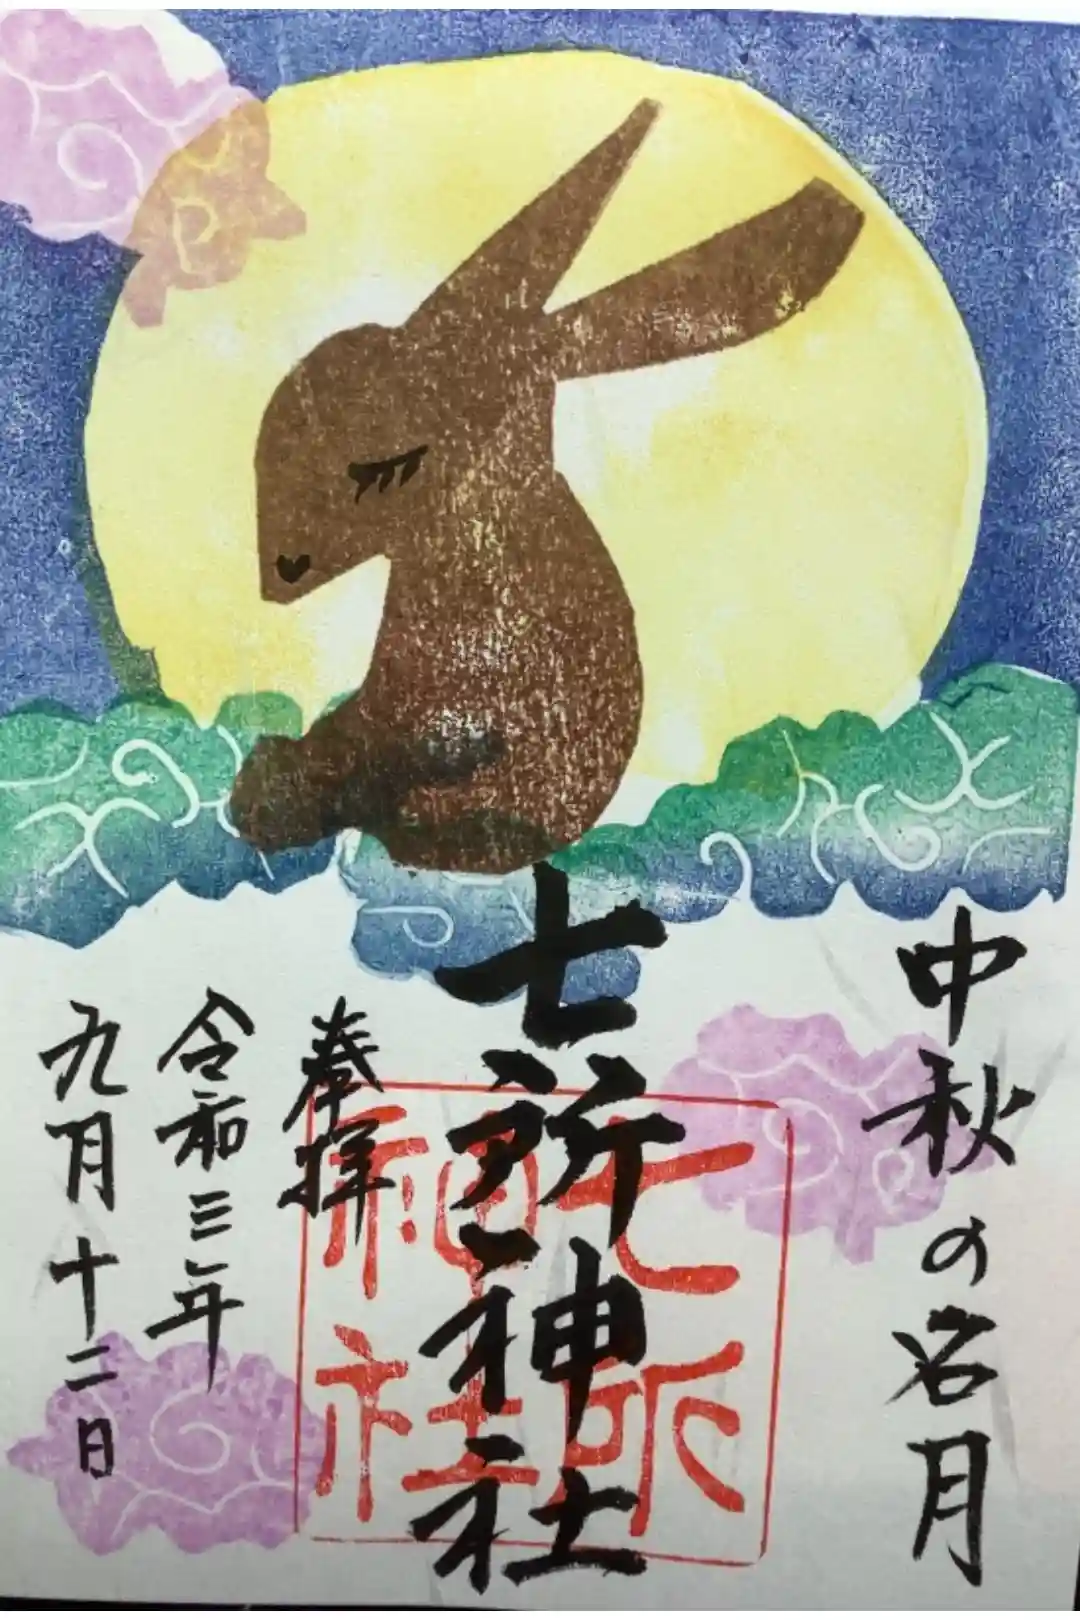 中秋の名月
七所神社
七所神社
奉拝
令和三年
九月十二日